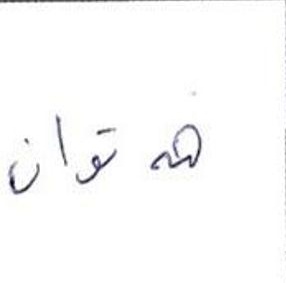 هه توان